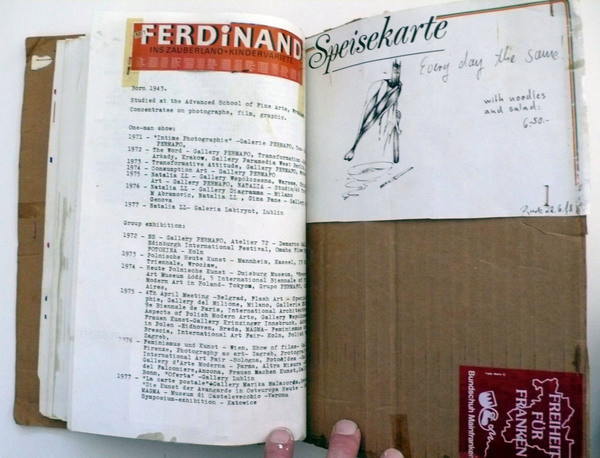 FERDiNAND
INS ZAUBERLAND • KINDERVARIETE
Born 1943.
Studied at the Advanced School of Fine Arts,
Concentrates on photographs, film, graphic.
One-man show:
1971 - "Intime Photographie" -Galerie PERMAFO,
PERMAFO,
1972 - The Word - Gallery PERMAFO, Transformation
Arkady, Krakow, Gallery Paramedia West Berlin
1973 - Transformative Attitude, Gallery PERMAFO,
1974 - Consumption Art - Gallery PERMAFO
1975 - Natalia LL - Gallery Współczesna, Warsaw,
Art - Gallery PERMAFO, NATALIA - Studio
1976 - Natalia LL - Gallery Diagramma - Milano
M Abramovic, NATALIA LL, Gina Pane - Gallery
Genova
1977 - Natalia LL- Galeria Labirynt, Lublin
Group exhibition:
1972 - NS - Gallery PERMAFO, Atelier 72 - Demarco
Edinburgh International Festival, Omaha
FOTOKINA - Koln
1973 - Polnische Heute Kunst - Mannheim, Kassel,
Triennale, Wrocław,
1974 - Heute Polnische Kunst - Duisburg Museum,
Art Museum Łódź, 5 International Biennale of
Modern Art in Poland- Tokyo, Grupo PERMAFO,
Aires,
1975 - 4th April Meeting -Belgrad, Flash Art -
phie, Gallery del Milione, Milano, Galerie
te Biennale de Paris, International
Aspects of Polish Modern Arts, Gallery
Frauen Kunst-Gallery Krinzinger Innsbruck,
in Polen -Eidhoven, Breda, MAGMA- Feminismo
Brescia, International Art Fair- Koln,
1976 - Feminismus und Kunst - Wien, Show of films-
Firenze, Photography as art- Zagreb,
International Art Fair -Bologna,
Gallery d'Arte Moderna - Parma, Altra Misura
del Falconiere, Ancona, Frauen Machen Kunst,
Bonn, "Oferta" -Gallery Lublin
1977 - "La carte postale" -Gallery Marika Malacorda,
"Die Kunst der Avancarde in Osteuropa Heute -
MAGMA - Museum di Castelvecchio -Verona
Symposium-exhibition - Katowice
Speisekarte
Every day the same!
with noodles
and salad:
6.50.-
FREIHEIT
FÜR
FRANKEN
Bundschuh Mainfranken